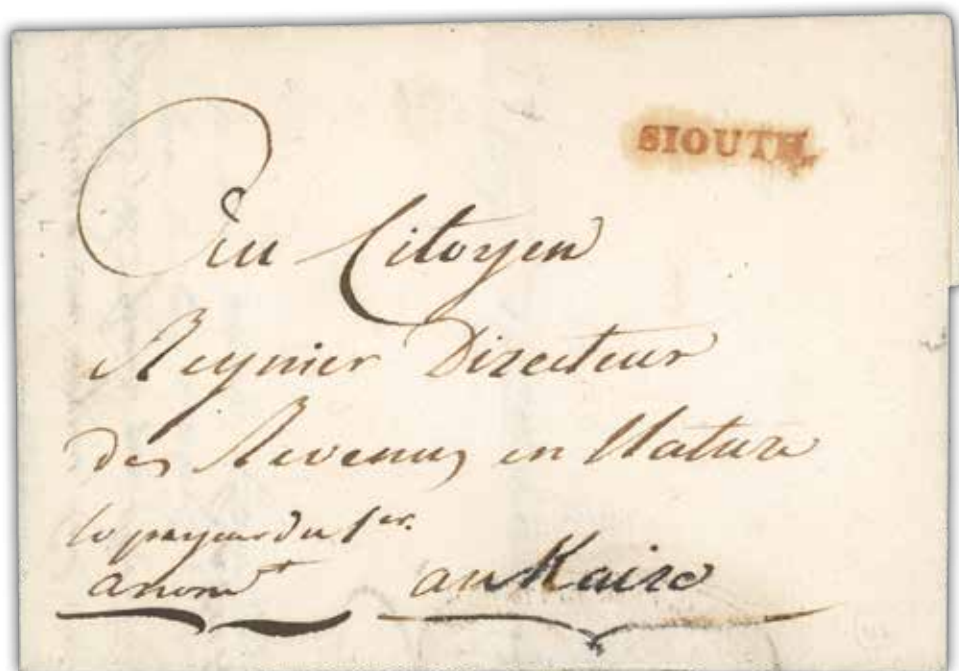 SIOUTH
Au Citoyen
Reynier Directeur
des Revenus en Nature
le payeur du 1er.
arrondt au Kaire